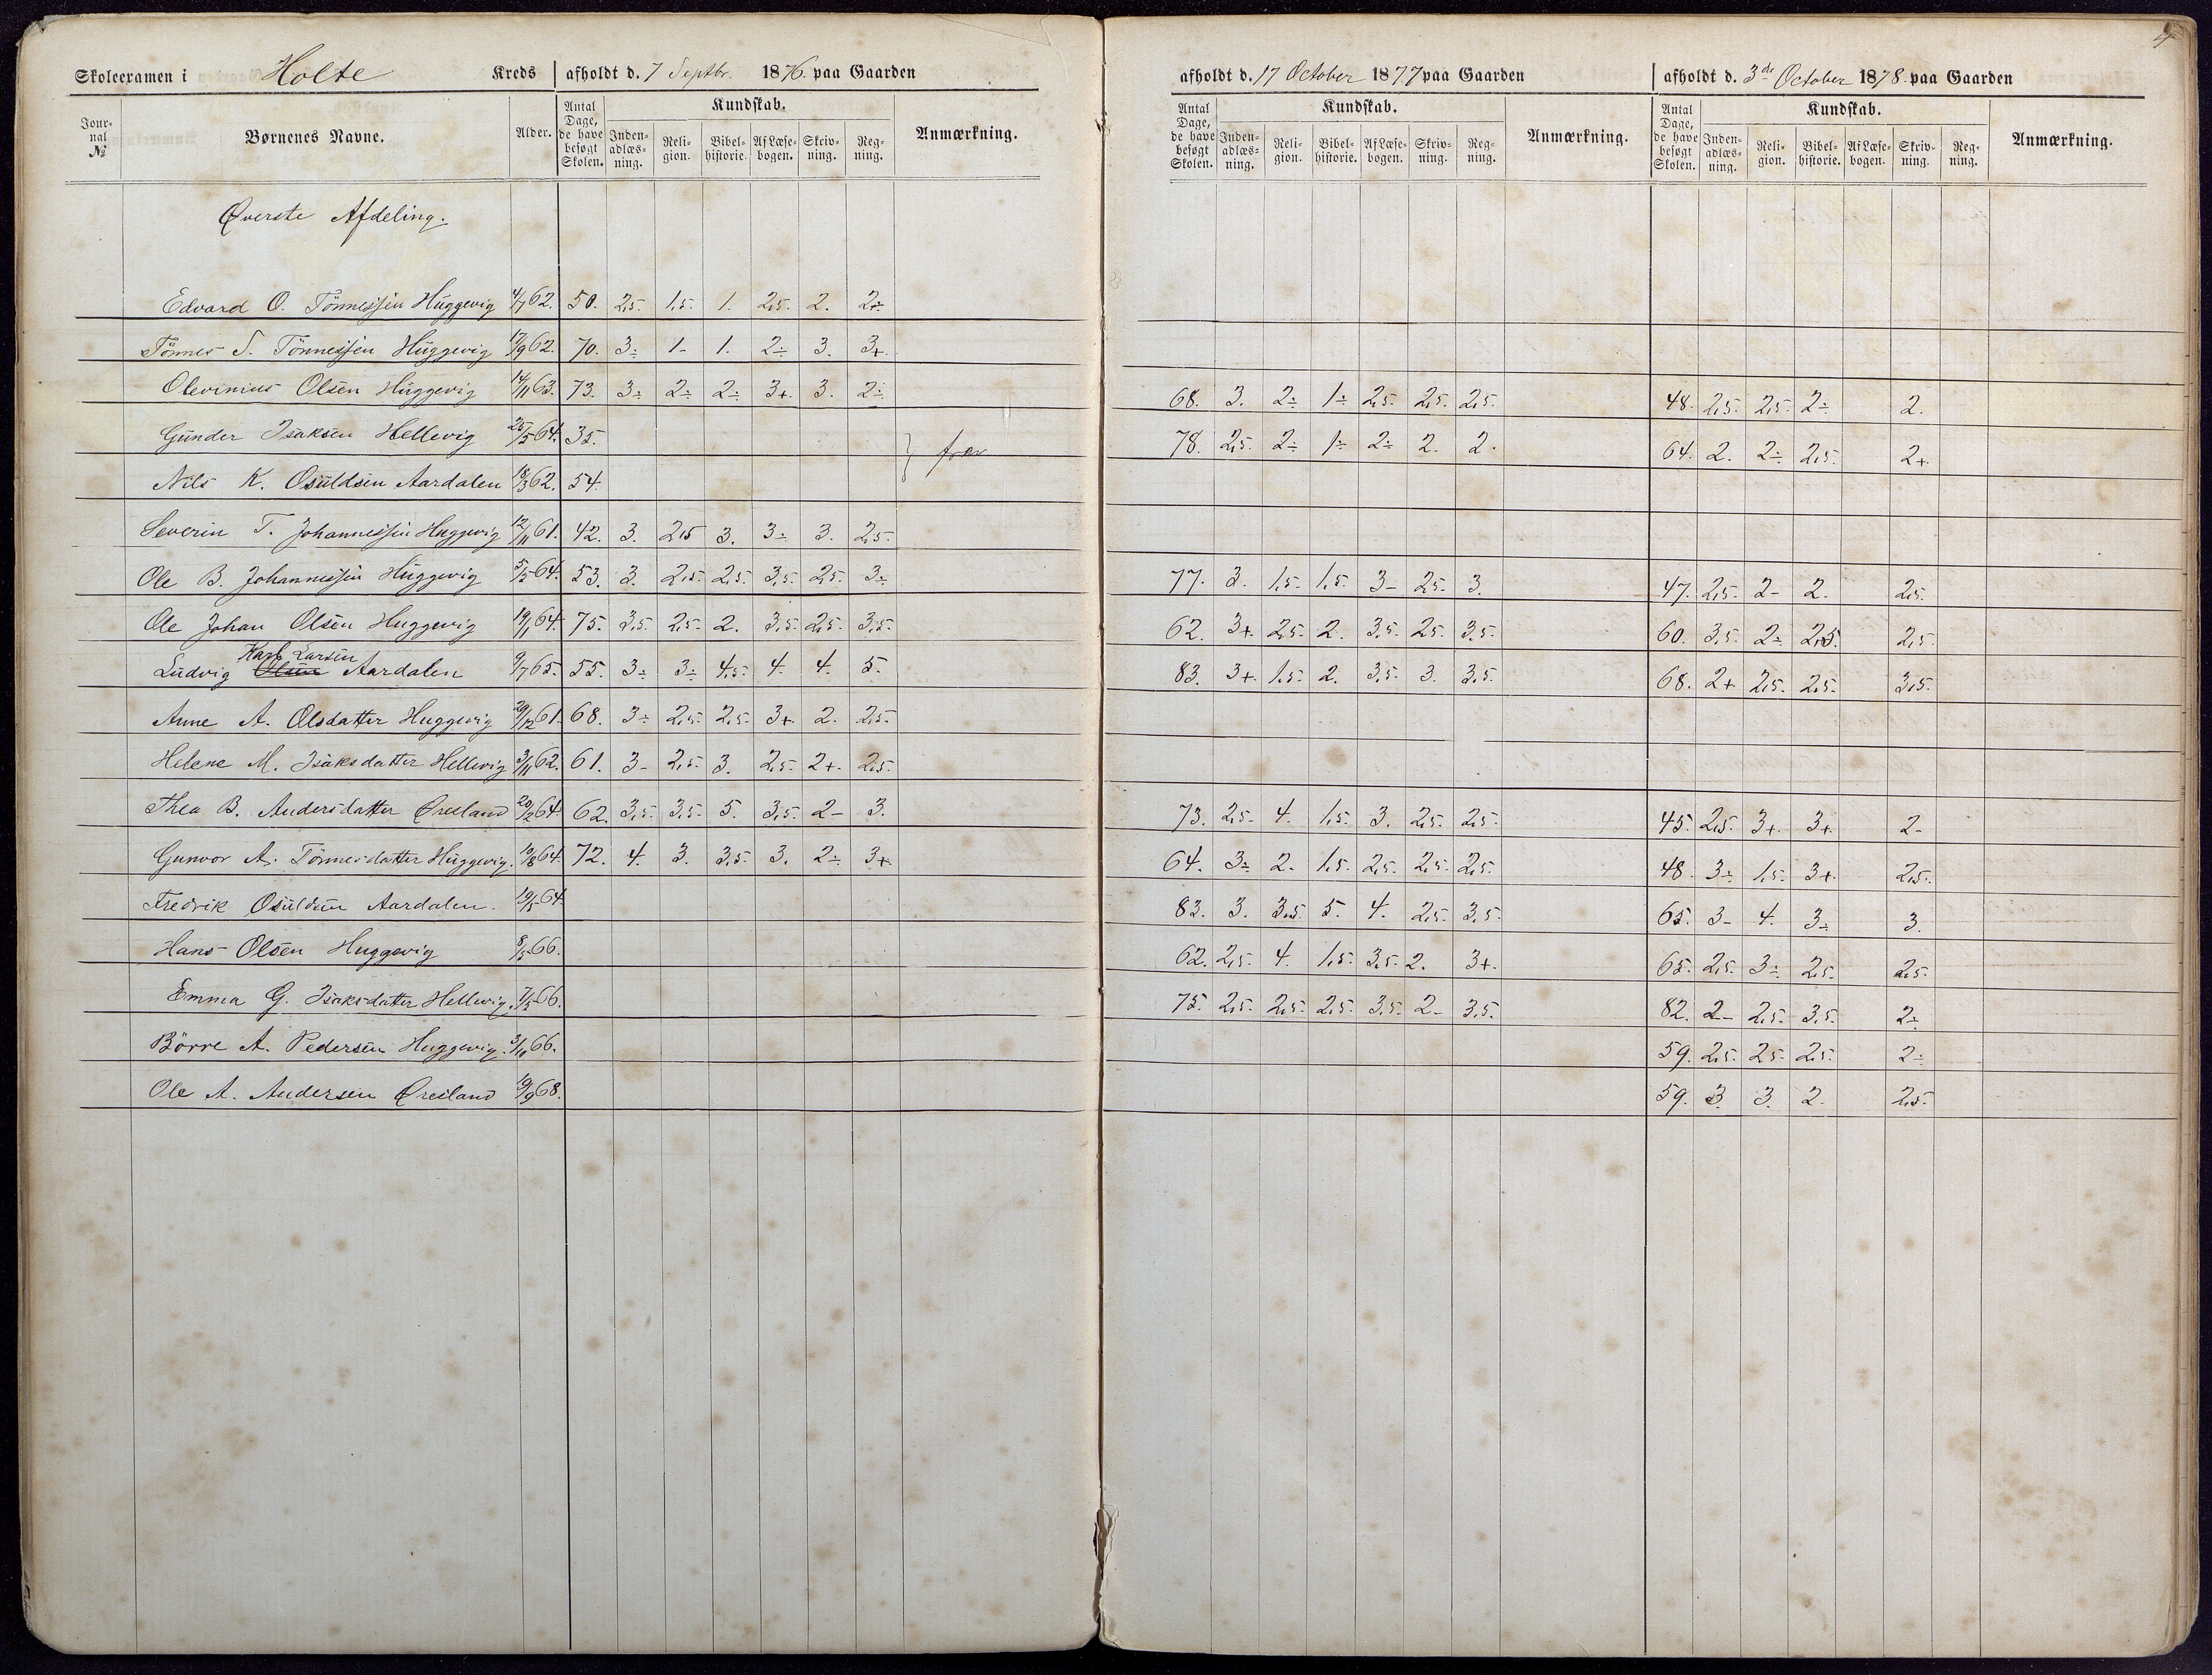 4
Skoleexamen i Holte Kreds afholdt d. 7 Septbr. 1876. paa Gaarden afholdt d. 17 October 1877 paa Gaarden afholdt d. 3de October 1878. paa Gaarden
Jour-nal № Børnenes Navne. Alder. Antal Dage, de have besøgt Skolen. Kundskab. Inden-adlæs-ning. Reli-gion. Bibel-historie. Af Læse-bogen. Skriv-ning. Reg-ning. Anmærkning. Antal Dage, de have besøgt Skolen. Kundskab. Inden-adlæs-ning. Reli-gion. Bibel-historie. Af Læse-bogen. Skriv-ning. Reg-ning. Anmærkning. Antal Dage, de have besøgt Skolen. Kundskab. Inden-adlæs-ning. Reli-gion. Bibel-historie. Af Læse-bogen. Skriv-ning. Reg-ning. Anmærkning.
Øverste Afdeling.
Edvard O. Tönnessen Huggevig 4/7 62. 50. 2,5. 1,5. 1. 2,5. 2. 2÷
Tönnes S. Tönnessen Huggevig 17/9 62. 70. 3÷ 1- 1. 2÷ 3. 3+.
Olevinius Olsen Huggevig 14/11 63. 73. 3÷ 2÷ 2÷ 3+. 3. 2÷ 68. 3. 2÷ 1÷ 2,5. 2,5. 2,5. 48. 2,5. 2,5. 2÷ 2.
Gunder Isaksen Hellevig 25/5 64. 35. } frav 78. 2,5. 2÷ 1÷ 2÷ 2. 2. 64. 2. 2÷ 2,5. 2+.
Nils K. Osuldsen Aardalen 18/3 62. 54.
Severin T. Johannessen Huggevig 12/11 61. 42. 3. 2,5 3. 3÷ 3. 2,5.
Ole B. Johannessen Huggevig 5/5 64. 53. 3. 2,5. 2,5. 3,5. 2,5. 3÷ 77. 3. 1,5. 1,5. 3- 2,5. 3. 47. 2,5. 2- 2. 2,5.
Ole Johan Olsen Huggevig 19/1 64. 75. 3,5. 2,5. 2. 3,5. 2,5. 3,5. 62. 3+. 2,5. 2. 3,5. 2,5. 3,5. 60. 3,5. 2÷ 2,5. 2,5.
Karl Larsen
Ludvig Olsen Aardalen 9/7 65. 55. 3÷ 3÷ 4,5. 4. 4. 5. 83. 3+. 1,5. 2. 3,5. 3. 3,5. 68. 2+ 2,5. 2,5. 3,5.
Anne A. Olsdatter Huggevig 29/12 61. 68. 3÷ 2,5. 2,5. 3+. 2. 2,5.
Helene M. Isaksdatter Hellevig 3/11 62. 61. 3- 2,5. 3. 2,5. 2+. 2,5.
Thea B. Andersdatter Øresland 20/2 64. 62. 3,5. 3,5. 5. 3,5. 2- 3. 73. 2,5. 4. 1,5. 3. 2,5. 2,5. 45. 2,5. 3+. 3+. 2-
Gunvor A. Tönnesdatter Huggevig. 10/8 64. 72. 4. 3. 3,5. 3. 2÷ 3+ 64. 3÷ 2. 1,5. 2,5. 2,5. 2,5. 48. 3÷ 1,5. 3+. 2,5.
Fredrik Osuldsen Aardalen. 19/5 64. 83. 3. 3,5 5. 4. 2,5. 3,5. 65. 3- 4. 3÷ 3.
Hans Olsen Huggevig 8/5 66. 62. 2,5. 4. 1,5. 3,5. 2. 3+. 65. 2,5. 3÷ 2,5. 2,5.
Emma G. Isaksdatter Hellevig. 7/5 66. 75. 2,5. 2,5. 2,5. 3,5. 2- 3,5. 82. 2- 2,5. 3,5. 2÷
Börre A. Pedersen Huggevig. 3/10 66. 59. 2,5. 2,5. 2,5. 2÷
Ole A. Andersen Øresland 19/9 68. 59. 3. 3. 2. 2,5.